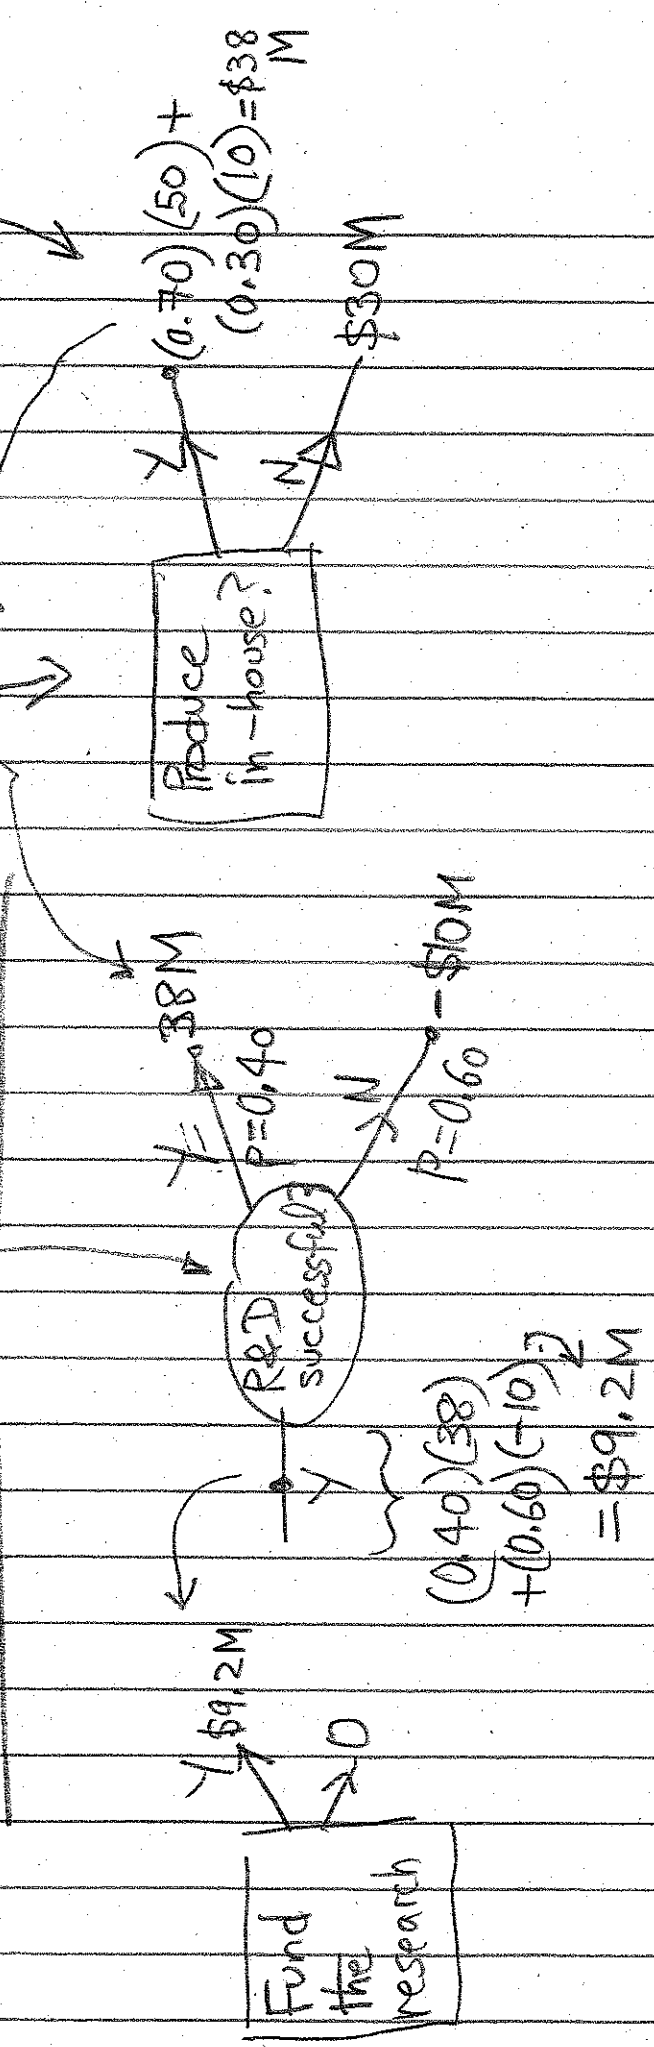 Fund
the
research
Y $9.2M
0
Y
(0.40)(38)
+(0.60)(-10)
=$9.2M
R&D
successful?
Y=
P=0.40
38M
N
P=0.60
-$10M
Produce
in-house?
Y
(0.70)(50)+
(0.30)(10)=$38
M
N
$30M